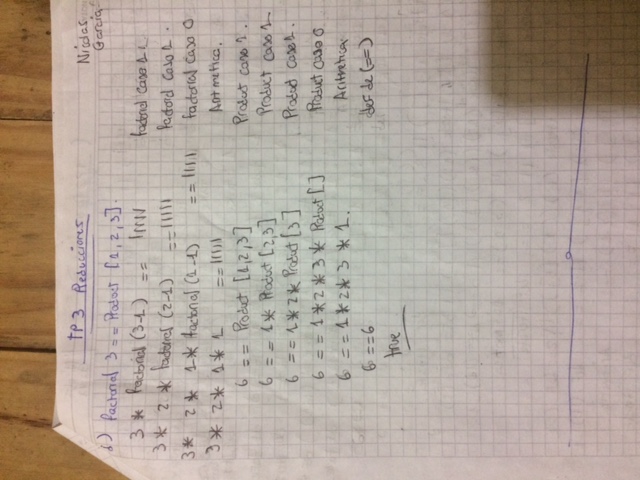 TP 3 Reducciones
Nicolas
Garcia
d) factorial 3 == Product [1,2,3].
3 * factorial (3-1) == ||||| factorial caso 1
3 * 2 * factorial (2-1) == ||||| factorial caso 1.
3 * 2 * 1 * factorial (1-1) == |||| factorial caso 0
3 * 2 * 1 * 1 == ||||| Aritmetica.
6 == Product [1,2,3] Product caso 1.
6 == 1 * Product [2,3] Product caso 1
6 == 1 * 2 * Product [3] Product caso 1.
6 == 1 * 2 * 3 * Product [] Product caso 0
6 == 1 * 2 * 3 * 1. Aritmetica
6 == 6 def de (==)
true